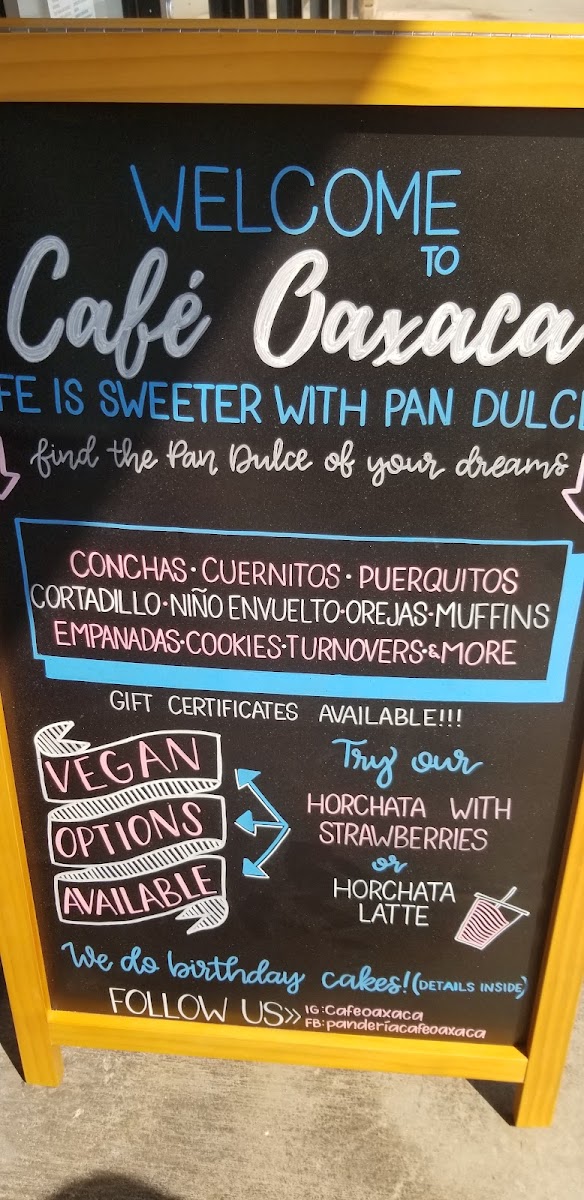 WELCOME
TO
Café Oaxaca
FE IS SWEETER WITH PAN DULC
find the Pan Dulce of your dreams
CONCHAS · CUERNITOS · PUERQUITOS
CORTADILLO · NIÑO ENVUELTO · OREJAS · MUFFINS
EMPANADAS · COOKIES · TURNOVERS · & MORE
GIFT CERTIFICATES AVAILABLE!!!
VEGAN
OPTIONS
AVAILABLE
Try our
HORCHATA WITH
STRAWBERRIES
or
HORCHATA
LATTE
We do birthday cakes! (DETAILS INSIDE)
FOLLOW US>>
IG: Cafeoaxaca
FB: panderíacafeoaxaca